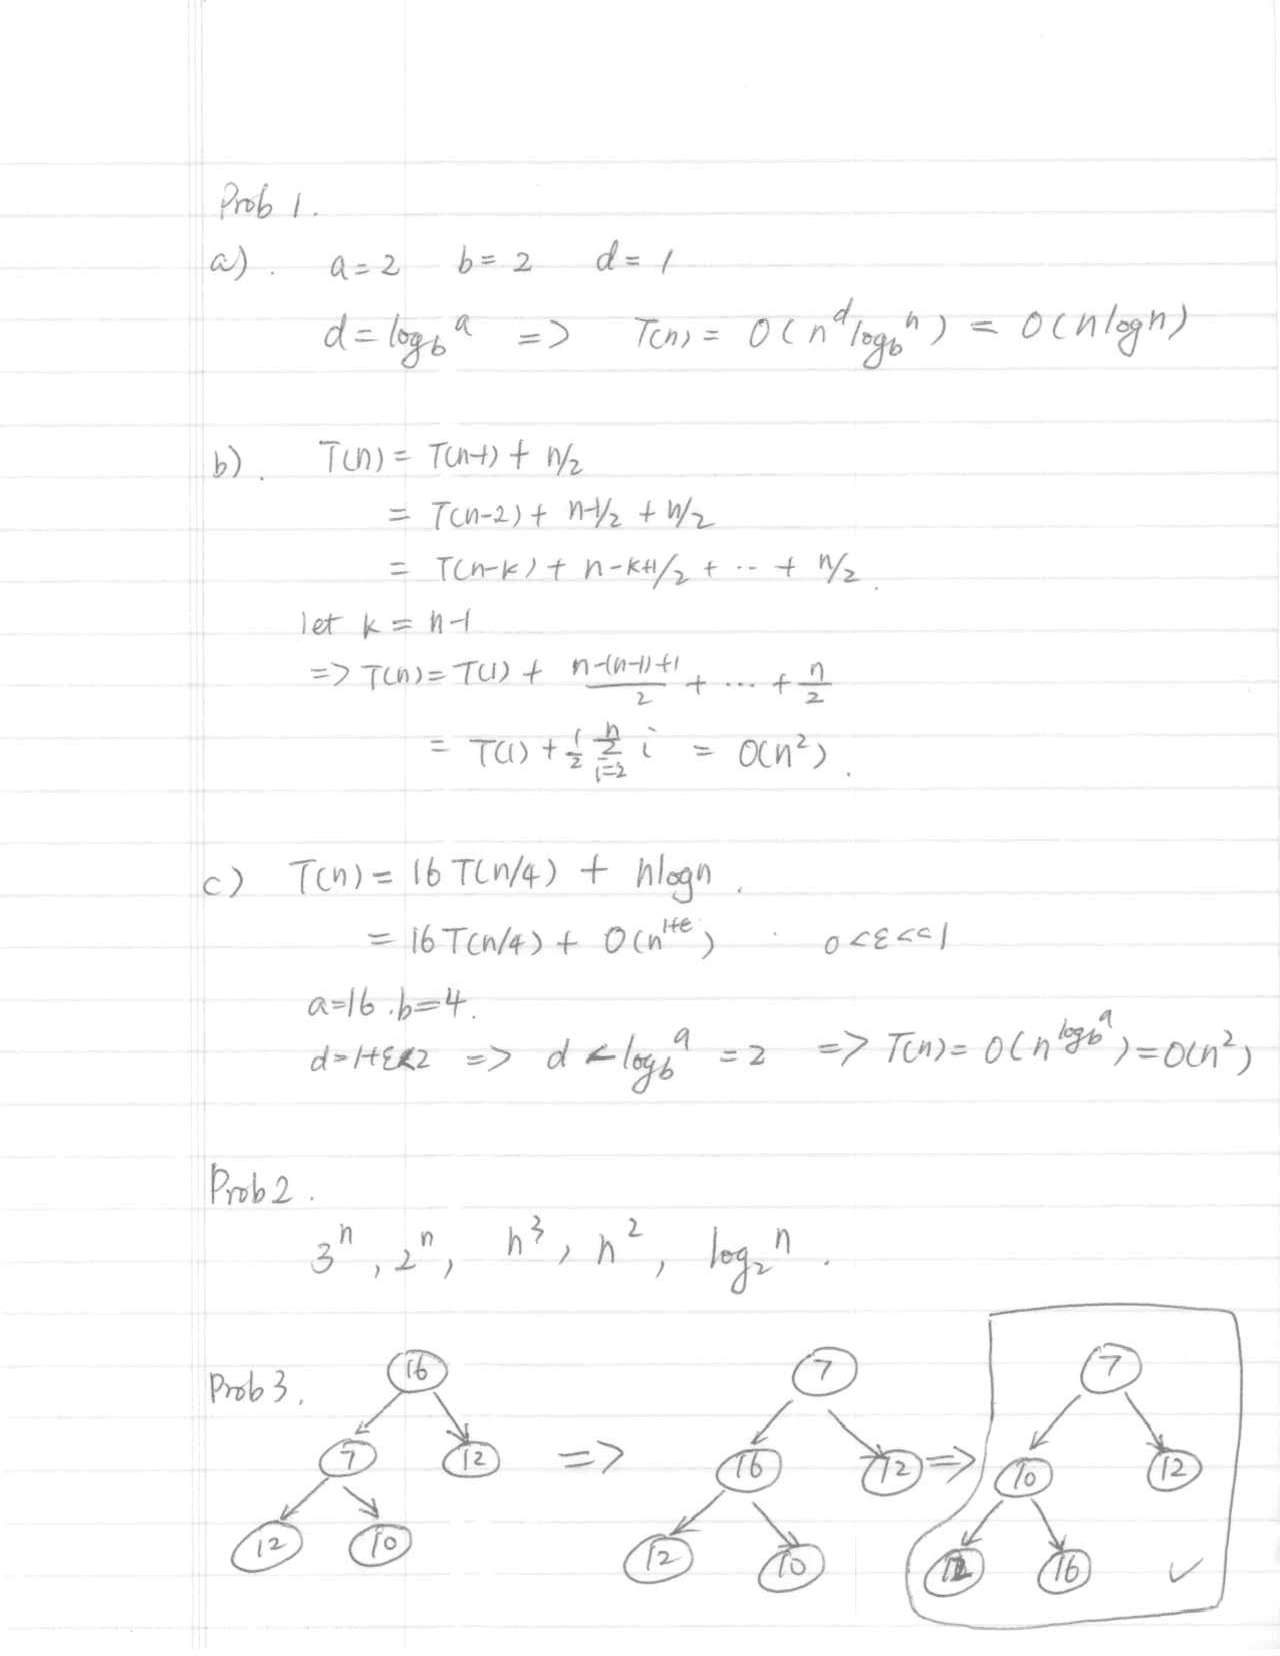 Prob 1.
a). a=2 b=2 d=1
d = log_b^a => T(n) = O(n^d log_b^n) = O(nlogn)
b). T(n) = T(n-1) + n/2
= T(n-2) + n-1/2 + n/2
= T(n-k) + n-k+1/2 + ... + n/2.
let k = n-1
=> T(n) = T(1) + \frac{n-(n-1)+1}{2} + ... + \frac{n}{2}
= T(1) + \frac{1}{2} \sum_{i=2}^{n} i = O(n^2).
c) T(n) = 16T(n/4) + nlogn.
= 16T(n/4) + O(n^{1+ε}) 0<ε<<1
a=16. b=4.
d=1+ε<2 => d < log_b^a = 2 => T(n) = O(n^{log_b^a}) = O(n^2)
Prob 2.
3^n, 2^n, n^3, n^2, log_2^n.
Prob 3.
16 7 7
7 12 => 16 12 => 10 12
12 10 12 10 12 16 ✓